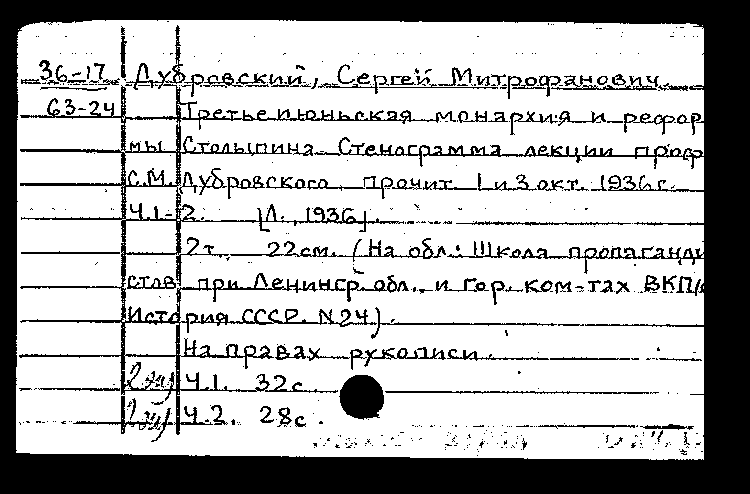 36-17 Дубровский, Сергей Митрофанович.
63-24 Третьеиюньская монархия и рефор
мы Столыпина. Стенограмма лекции проф
С.М. Дубровского, прочит. 1 и 3 окт. 1936 г.
Ч.1-2. [Л., 1936].
2т. 22см. (На обл.: Школа пропаганди
стов при Ленингр. обл. и гор. ком-тах ВКП/б
История СССР. N24).
На правах рукописи.
2 экз Ч.1. 32с.
2 экз Ч.2. 28с.